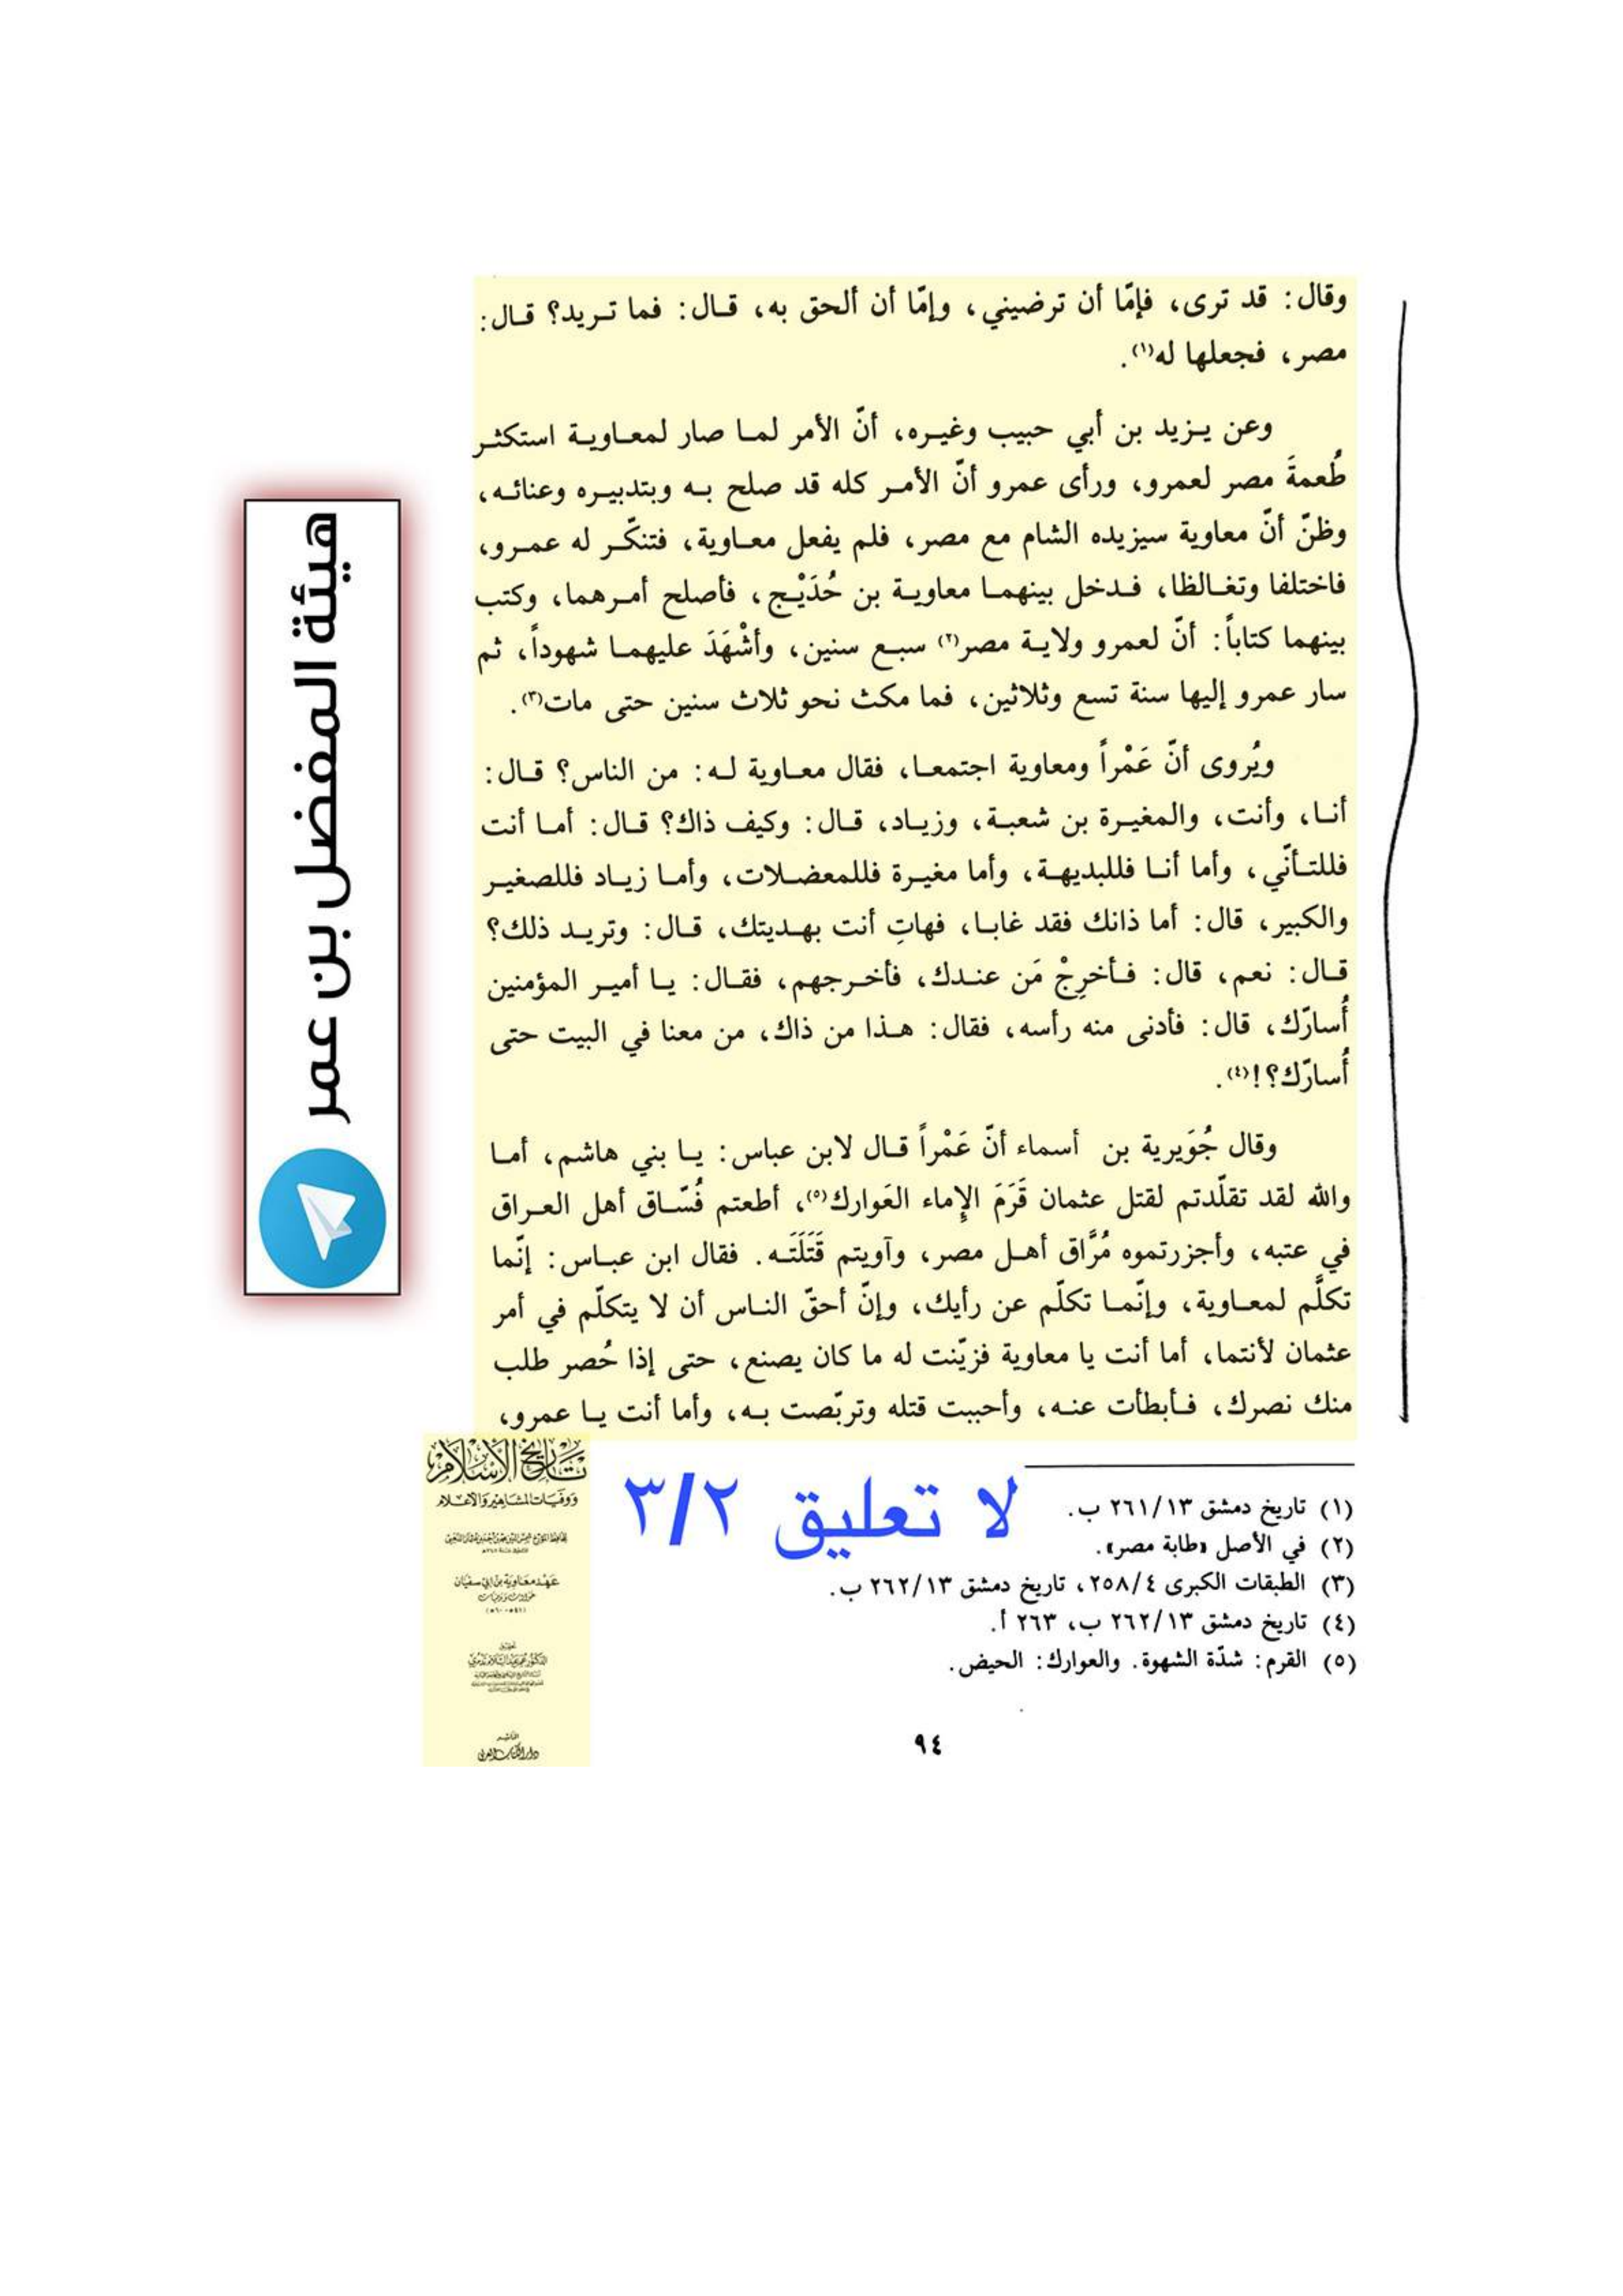 وقال: قد ترى، فإمّا أن ترضيني، وإمّا أن ألحق به، قـال: فما تـريد؟ قـال:
مصر، فجعلها له(١).
وعن يـزيد بن أبي حبيب وغيـره، أنّ الأمر لمـا صار لمعـاويـة استكثـر
طُعمةَ مصر لعمرو، ورأى عمرو أنّ الأمـر كله قد صلح بـه وبتدبيـره وعنائـه،
وظنّ أنّ معاوية سيزيده الشام مع مصر، فلم يفعل معـاوية، فتنكّـر له عمـرو،
فاختلفا وتغـالظا، فـدخل بينهمـا معاويـة بن حُدَيْـج، فأصلح أمـرهما، وكتب
بينهما كتاباً: أنّ لعمرو ولايـة مصر(٢) سبـع سنين، وأشْهَدَ عليهمـا شهوداً، ثم
سار عمرو إليها سنة تسع وثلاثين، فما مكث نحو ثلاث سنين حتى مات(٣).
ويُروى أنّ عَمْراً ومعاوية اجتمعـا، فقال معـاوية لـه: من الناس؟ قـال:
أنـا، وأنت، والمغيـرة بن شعبـة، وزيـاد، قـال: وكيف ذاك؟ قـال: أمـا أنت
فللتـأنّي، وأما أنـا فللبديهـة، وأما مغيـرة فللمعضـلات، وأمـا زيـاد فللصغيـر
والكبير، قال: أما ذانك فقد غابـا، فهاتِ أنت بهـديتك، قـال: وتريـد ذلك؟
قـال: نعم، قال: فـأخرِجْ مَن عنـدك، فأخـرجهم، فقـال: يـا أميـر المؤمنين
أُسارّك، قال: فأدنى منه رأسه، فقال: هـذا من ذاك، من معنا في البيت حتى
أُسارّك؟!(٤).
وقال جُوَيرية بن أسماء أنّ عَمْراً قـال لابن عباس: يـا بني هاشم، أمـا
والله لقد تقلّدتم لقتل عثمان قَرَمَ الإماء العَوارك(٥)، أطعتم فُسّـاق أهل العـراق
في عتبه، وأجزرتموه مُرَّاق أهـل مصر، وآويتم قَتَلَتَـه. فقال ابن عبـاس: إنّما
تكلَّم لمعـاوية، وإنّمـا تكلّم عن رأيك، وإنّ أحقّ النـاس أن لا يتكلّم في أمر
عثمان لأنتما، أما أنت يا معاوية فزيّنت له ما كان يصنع، حتى إذا حُصر طلب
منك نصرك، فـأبطأت عنـه، وأحببت قتله وتربّصت بـه، وأما أنت يـا عمرو،
(١) تاريخ دمشق ٢٦١/١٣ ب.
(٢) في الأصل «طابة مصر».
(٣) الطبقات الكبرى ٢٥٨/٤، تاريخ دمشق ٢٦٢/١٣ ب.
(٤) تاريخ دمشق ٢٦٢/١٣ ب، ٢٦٣ أ.
(٥) القرم: شدّة الشهوة. والعوارك: الحيض.
٩٤
لا تعليق ٣/٢
تاريخ الإسلام
ووفيات المشاهير والأعلام
عهد معاوية بن أبي سفيان
الناشر
دار الكتاب العربي
هيئة المفضل بن عمر